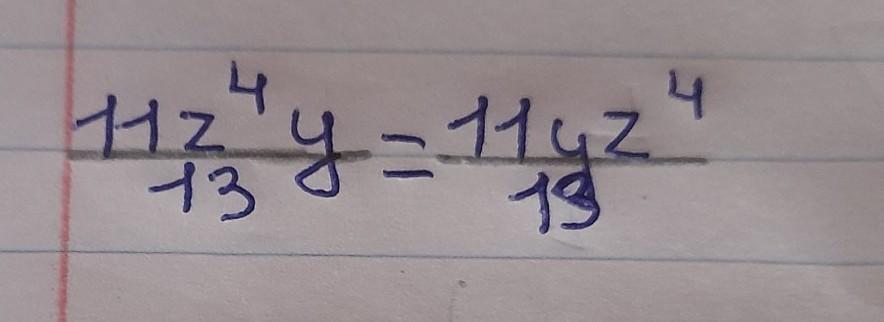 11z⁴y/13 = 11yz⁴/13